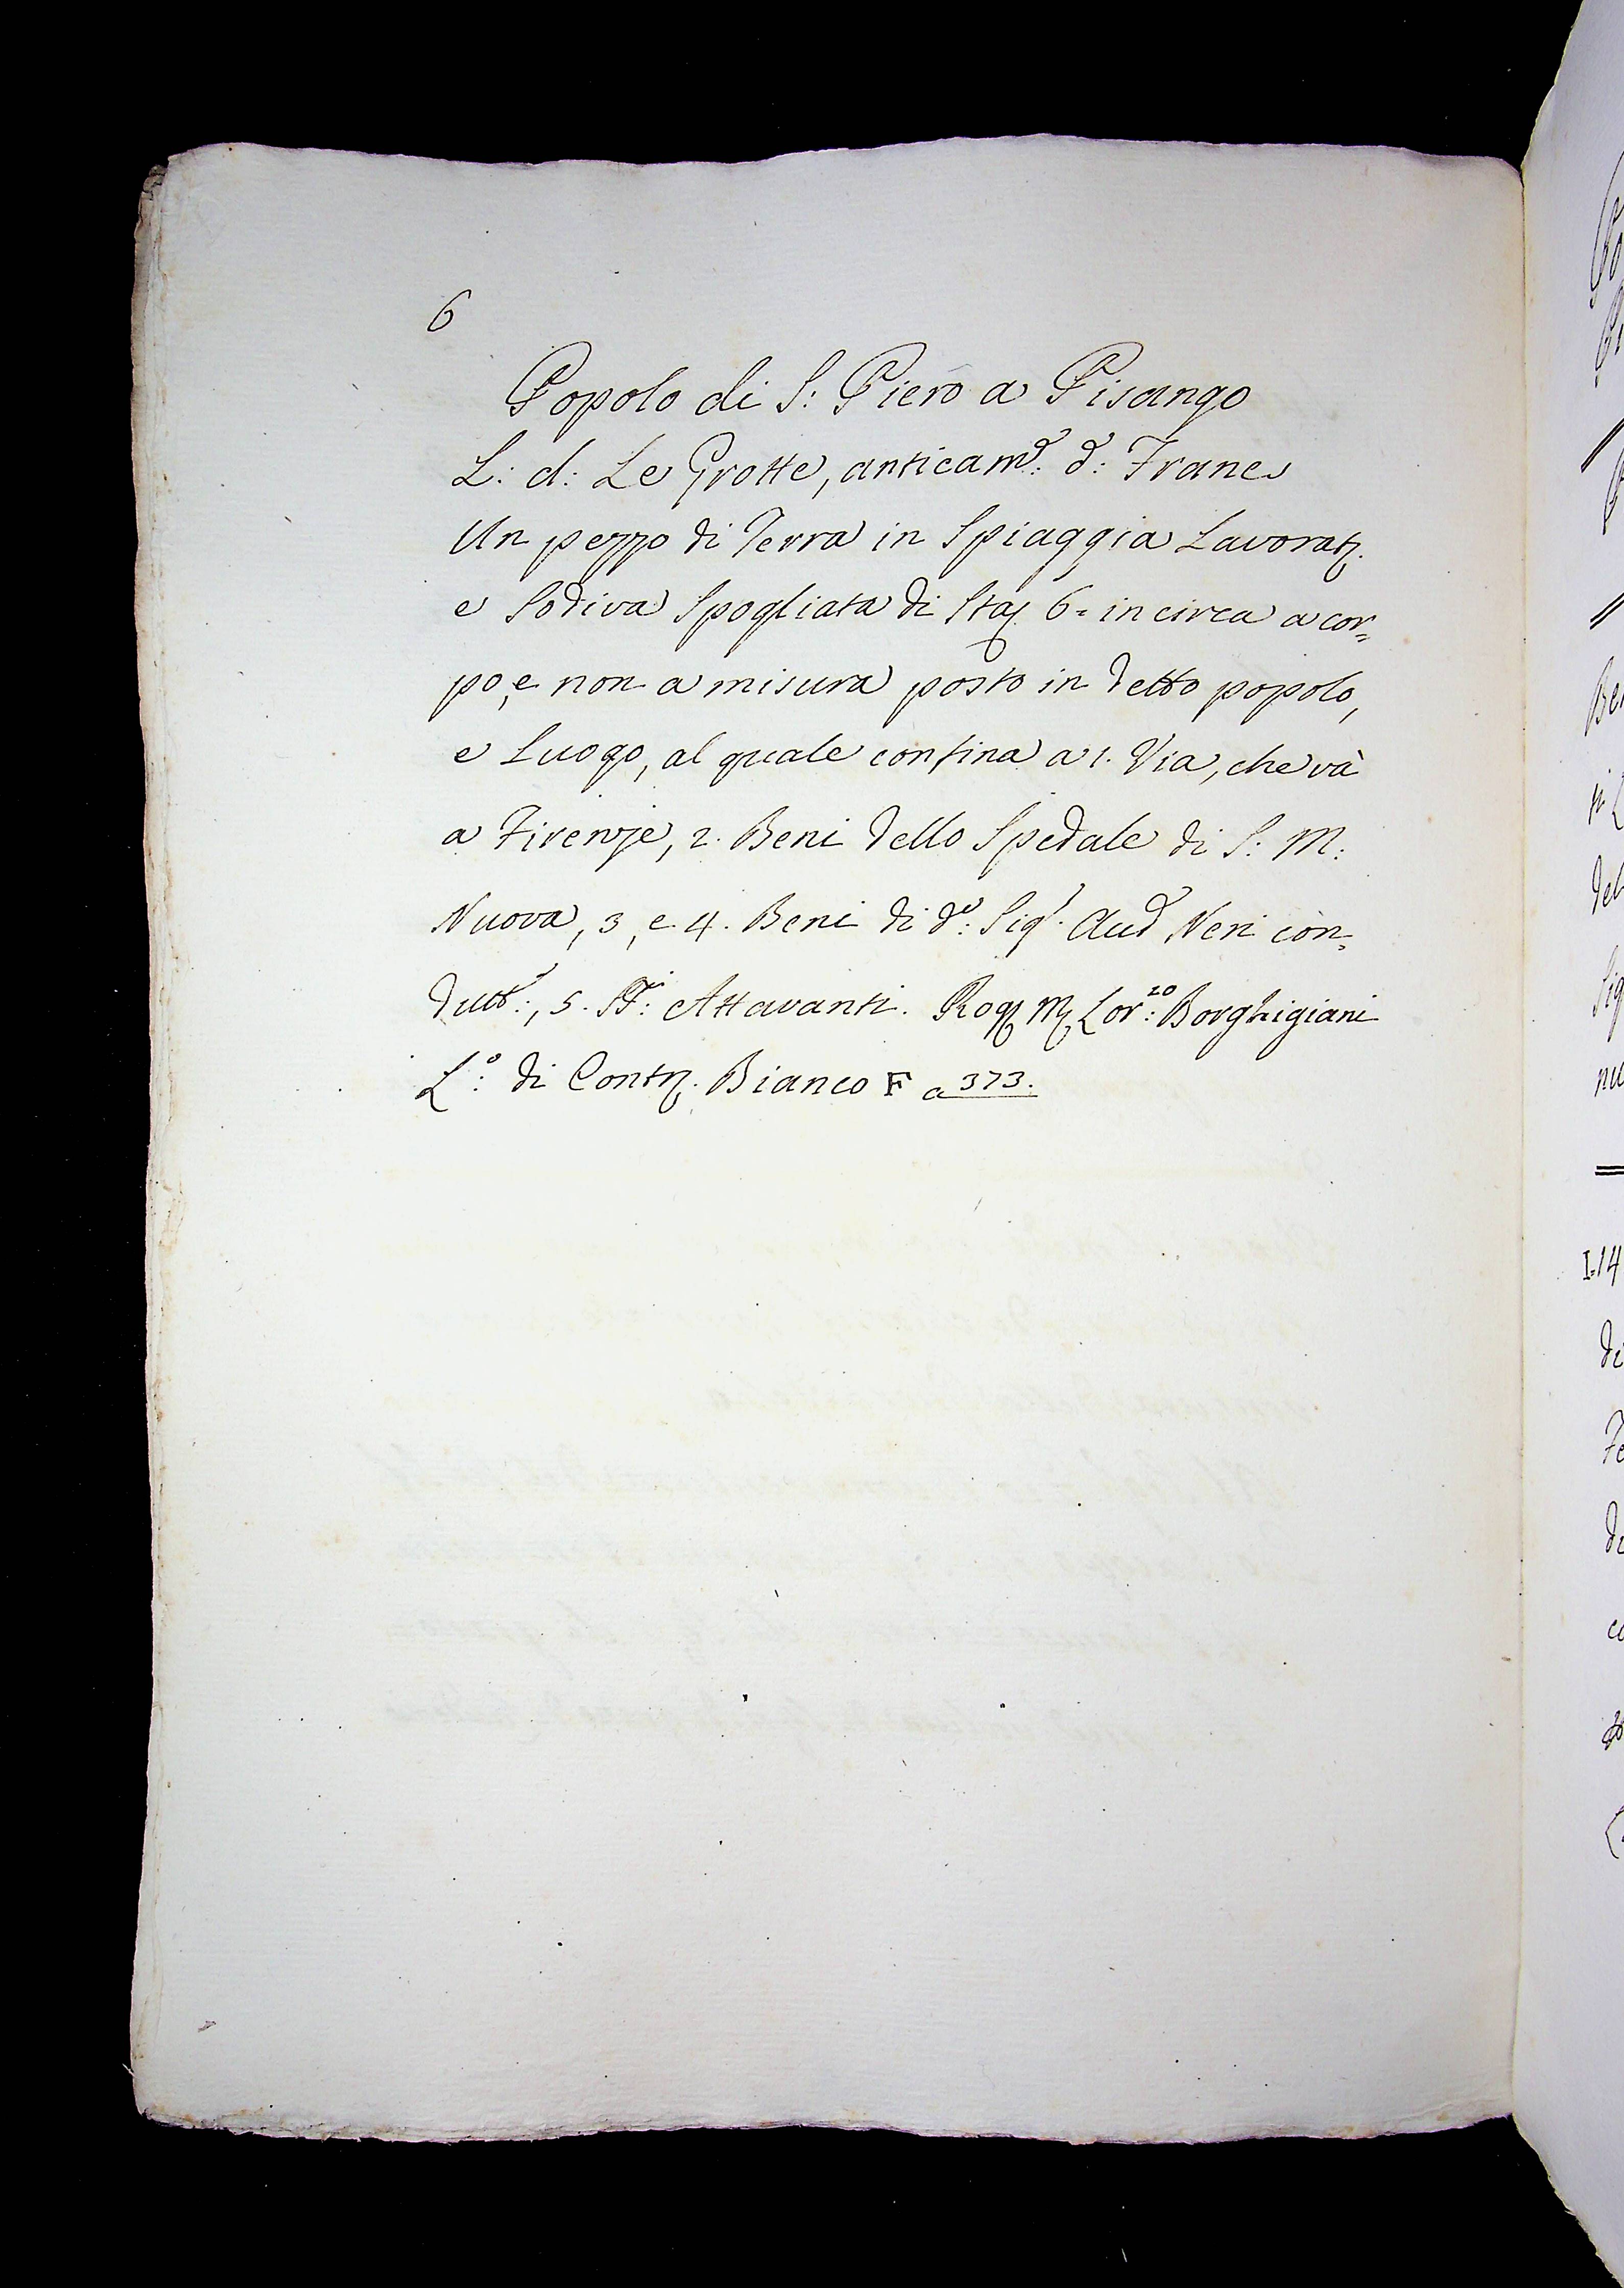 6
Popolo di S: Piero a Pisango
L: d: Le Grotte, anticam.e d: Frane
Un pezzo di Terra in Spiaggia Lavorat.
e Sodiva Spogliata di Sta 6= in circa a cor=
po, e non a misura posto in detto popolo,
e Luogo, al quale confina a 1. Via, che và
a Firenze, 2. Beni dello Spedale di S: M:
Nuova, 3, e 4. Beni di d.o: Sig.r: Aud Neri con=
dutt.:, 5. Attavanti. Rog M Lor.zo: Borghigiani
L.o: di Contr. Bianco F a 373.